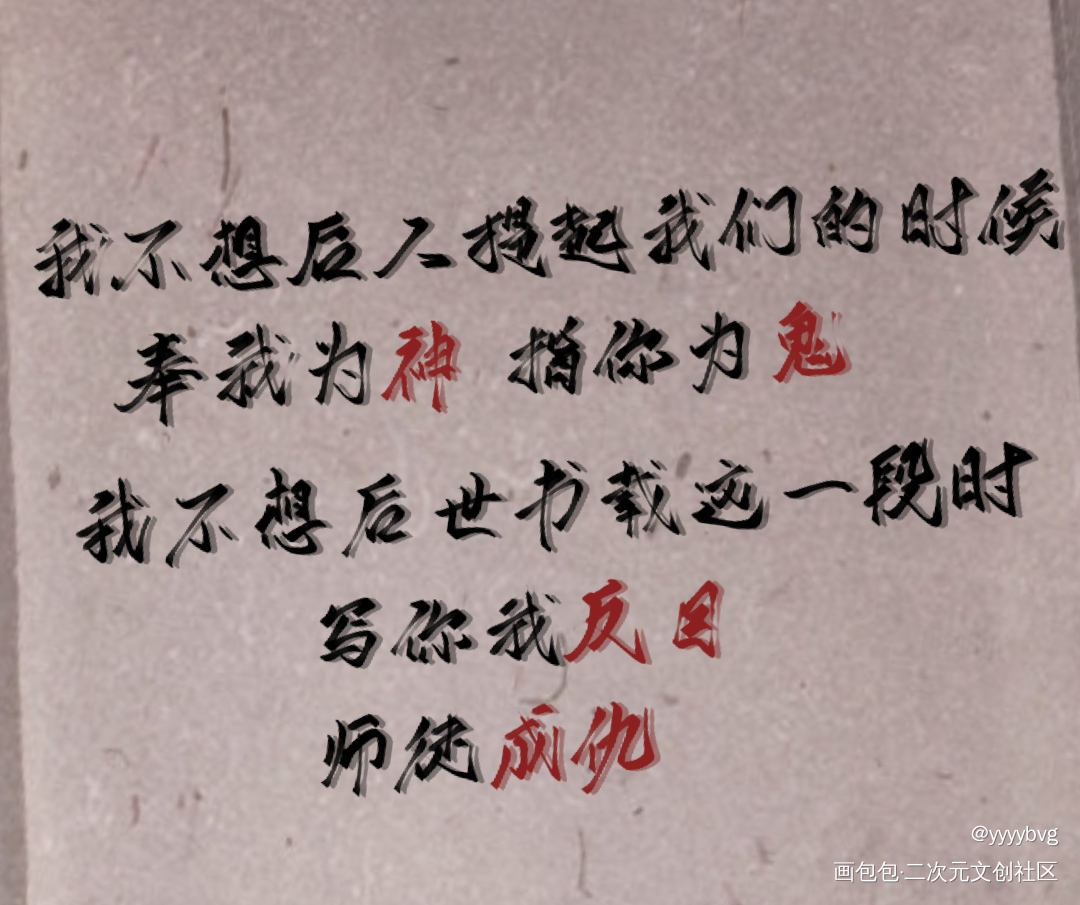 我不想后人提起我们的时候
奉我为神 指你为鬼
我不想后世书载这一段时
写你我反目
师徒成仇
@yyyybvg
画包包·二次元文创社区